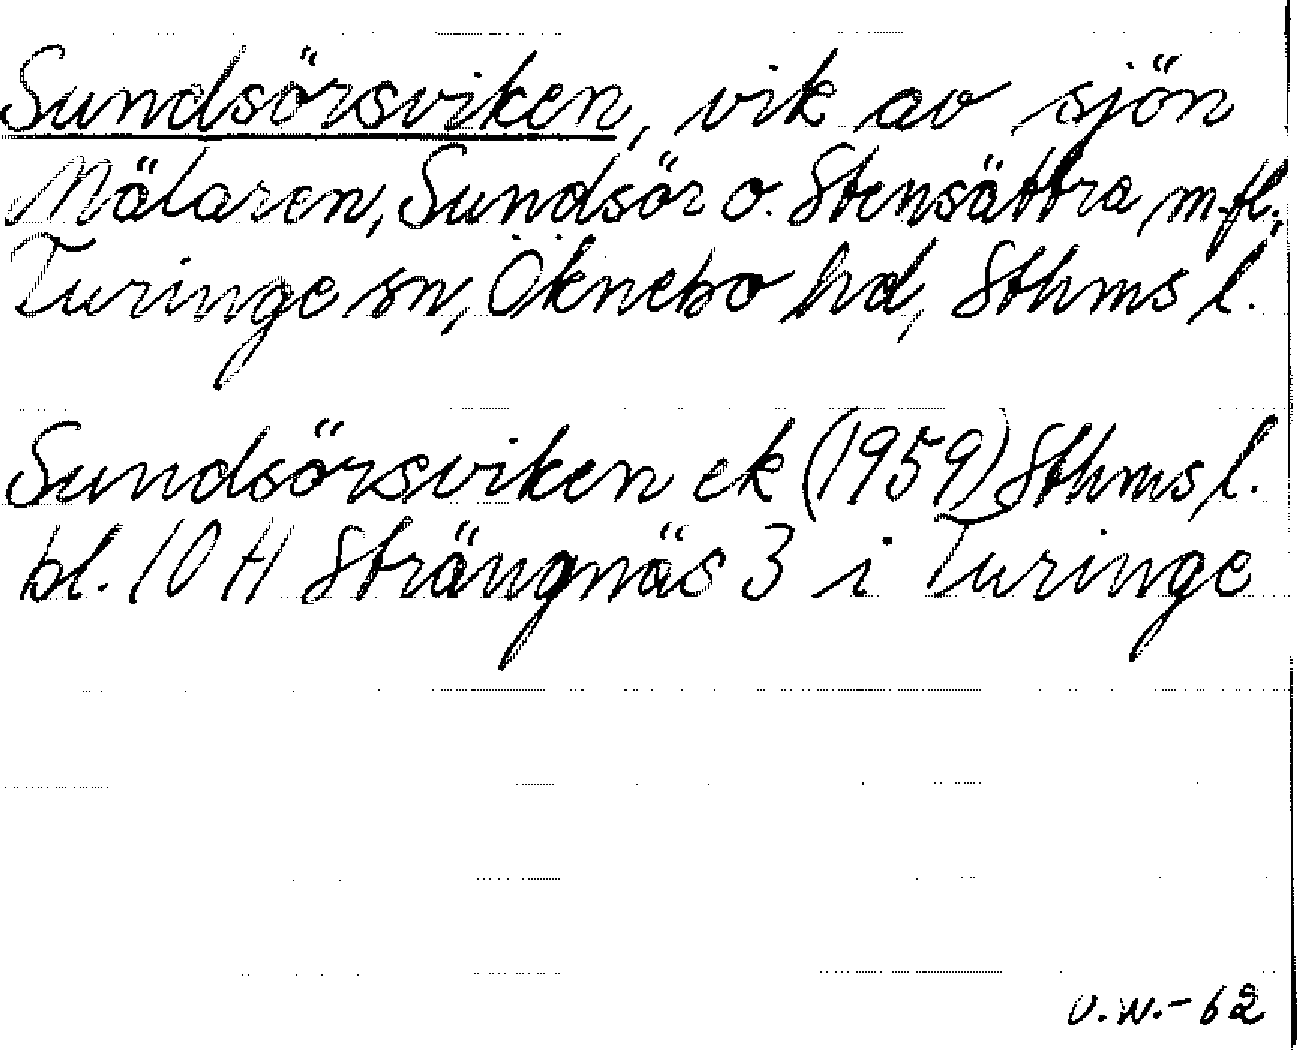 Sundsörsviken, vik av sjön
Mälaren, Sundsör o. Stensättra m.fl.,
Turinge sn, Öknebo hd, Sthms l.
Sundsörsviken ek (1959) Sthms l.
bl. 10 H Strängnäs 3 i Turinge
U.W.-62